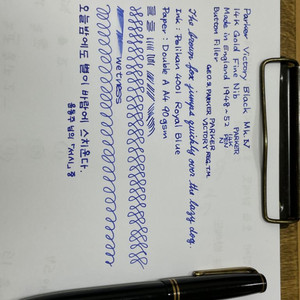 Parker Victory Black Mk.IV
14K Gold Fine Nib
Made in England 1948-52
Button Filler
PARKER
GEO.S.PARKER
VICTORY
PARKER
The brown fox jumps quickly over the lazy dog.
Ink : Pelikan 4001 Royal Blue
Paper : Double A A4 90gsm
wetness
오늘밤에도 별이 바람에 스치운다.
윤동주 님의 「서시」 중